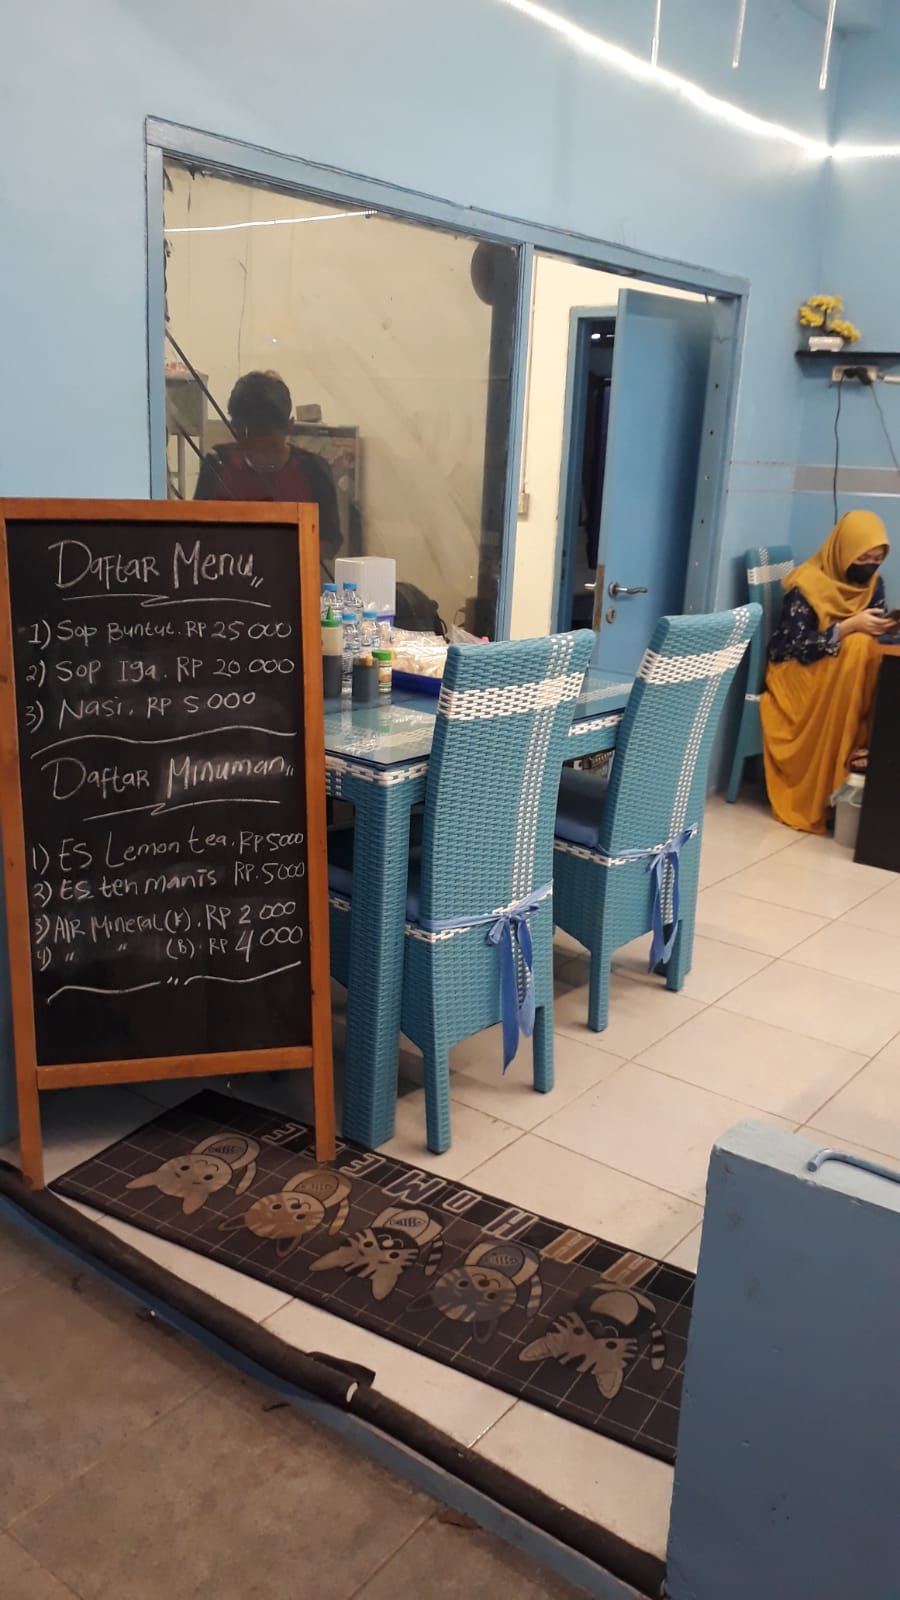 Daftar Menu,,
1) Sop Buntut. RP 25 000
2) Sop Iga. RP 20.000
3) Nasi, RP 5000
Daftar Minuman,,
1) ES Lemon tea. RP 5000
2) ES teh manis RP. 5000
3) AIR Mineral (K). RP 2 000
4) " " (B). RP 4 000